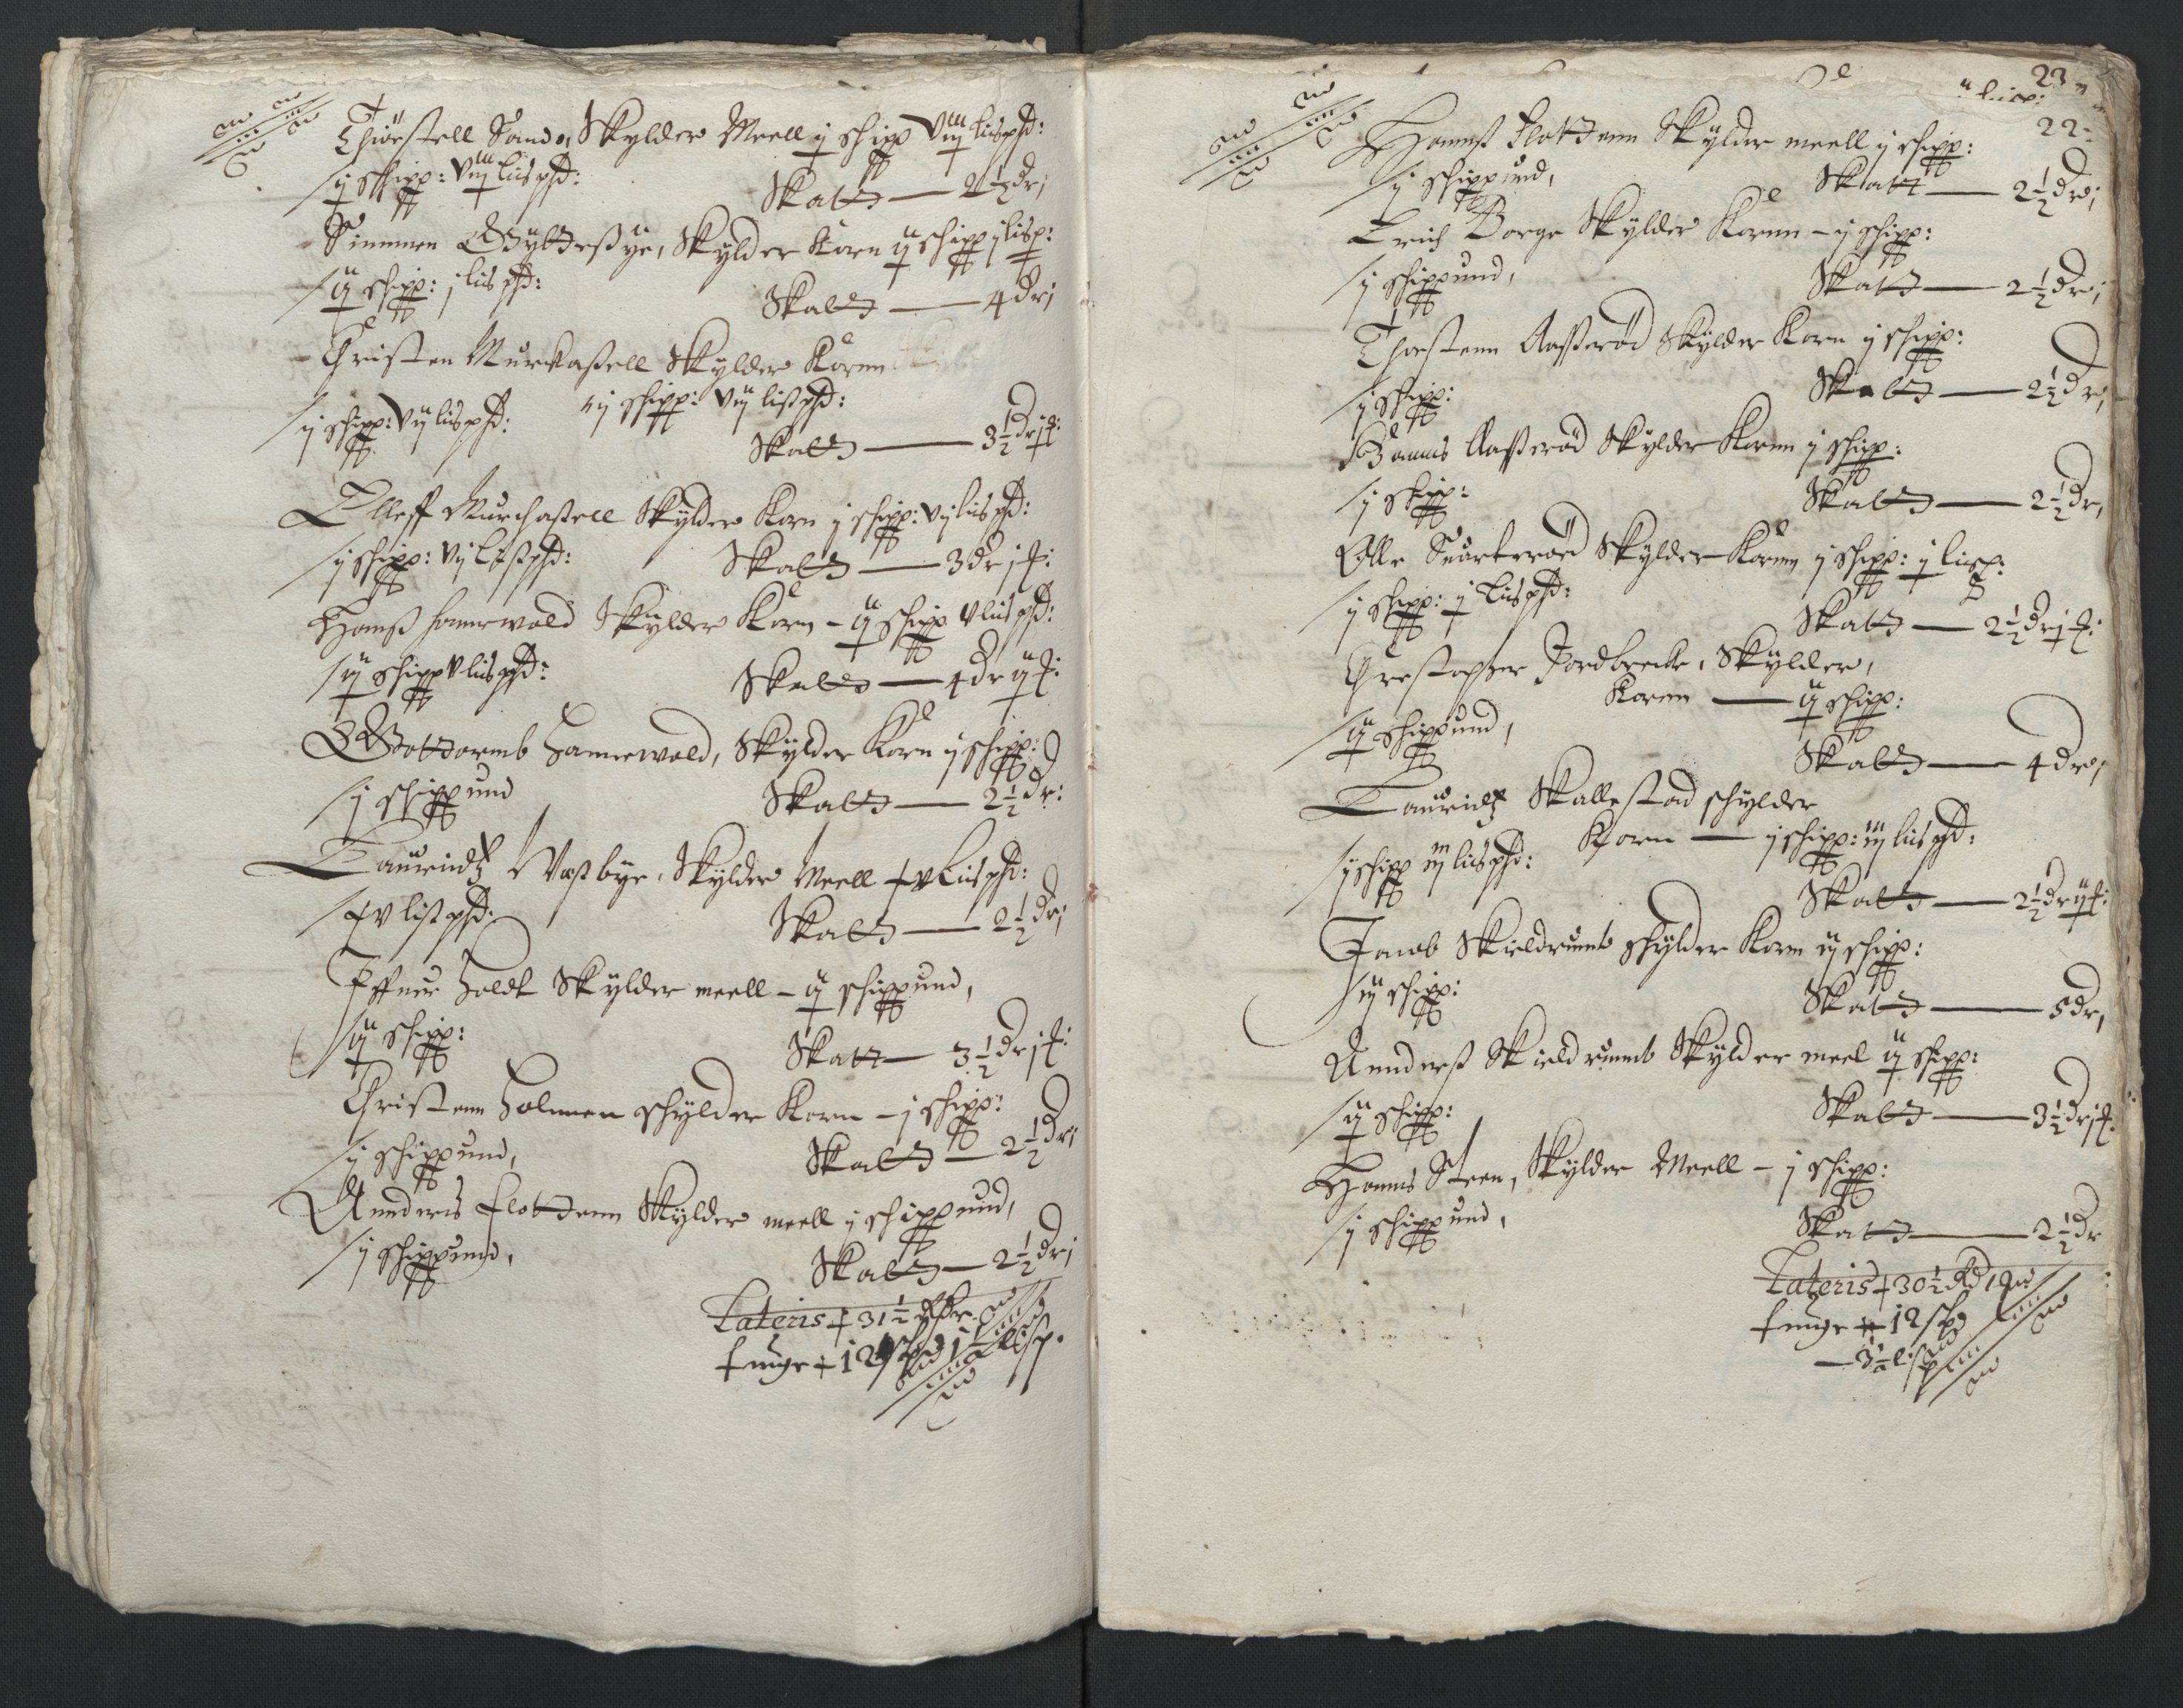 Thiøstell Sande, Skylder Meell j schipp viij liispd:
/j schipp: viij liispd:
Skatt — 2½ dr;
Simmen Gyltteßye, Skylder Korn ij schipp j lisp:
/ij schipp: j liispd:
Skatt — 4 dr;
Christen Murkastell Skylder Korenn
j schipp: vij lißpd:
/j schipp: vij liispd:
Skatt — 3½ dr j t:
Olleff Murchastell Skylder Korn j schipp: vj liispd:
/j schipp: vj lißpd:
Skatt — 3 dr j t:
Hanß hannewald Skylder Korn – ij schipp v liispd:
/ij schipp v liispd:
Skatt — 4 dr ij t:
Gottormb Hannewald, Skylder Korn j schipp:
/j schippund
Skatt — 2½ dr:
Lauridtz Væstbye, Skylder Meell xv Liispd:
/xv lißpd:
Skatt — 2½ dr;
Effuer Holdt Skylder meell – ij schippund,
/ij schipp:
Skatt — 3½ dr j t:
Christenn Holmen schylder Korn – j schipp:
/j schippund,
Skatt — 2½ dr;
Anderis Flottenn Skylder meell j schippund,
/j schippund,
Skatt — 2½ dr;
Lateris 31½
12 j½ lisp.
23
22
Hannß Flottenn Skylder meell j schipp:
/j schippund,
Skatt — 2½ dr;
Erich Borge Skylder Korenn – j schipp:
/j schippund,
Skatt — 2½ dr;
Thorstenn Aasserød Skylder Korn j schipp:
/j schipp:
Skatt — 2½ dr;
Hanns Aasserød Skylder Korenn j schipp:
/j schipp:
Skatt — 2½ dr,
Olle Suarterød Skylder Korenn j schipp: j liisp:
/j schipp: j liispd:
Skatt — 2½ dr j t:
Christopher Jordbrecke, Skylder,
Korenn — ij schipp:
/ij schippund,
Skatt — 4 dr;
Lauridtz Skallestad schylder
Korn — j schipp: iij liispd:
/j schipp iij liispd:
Skatt — 2½ dr ij t:
Jacob Skieldrumb schylder Korn iij schipp:
/iij schipp:
Skatt — 5 dr,
Annderß Skieldrumb Skylder meel ij schipp:
/ij schipp:
Skatt — 3½ dr j t:
Hanns Steen, Skylder Meell – j schipp:
/j schippund,
Skatt — 2½ dr
Lateris 30½ Rd
12 spd
— 3½ lisp